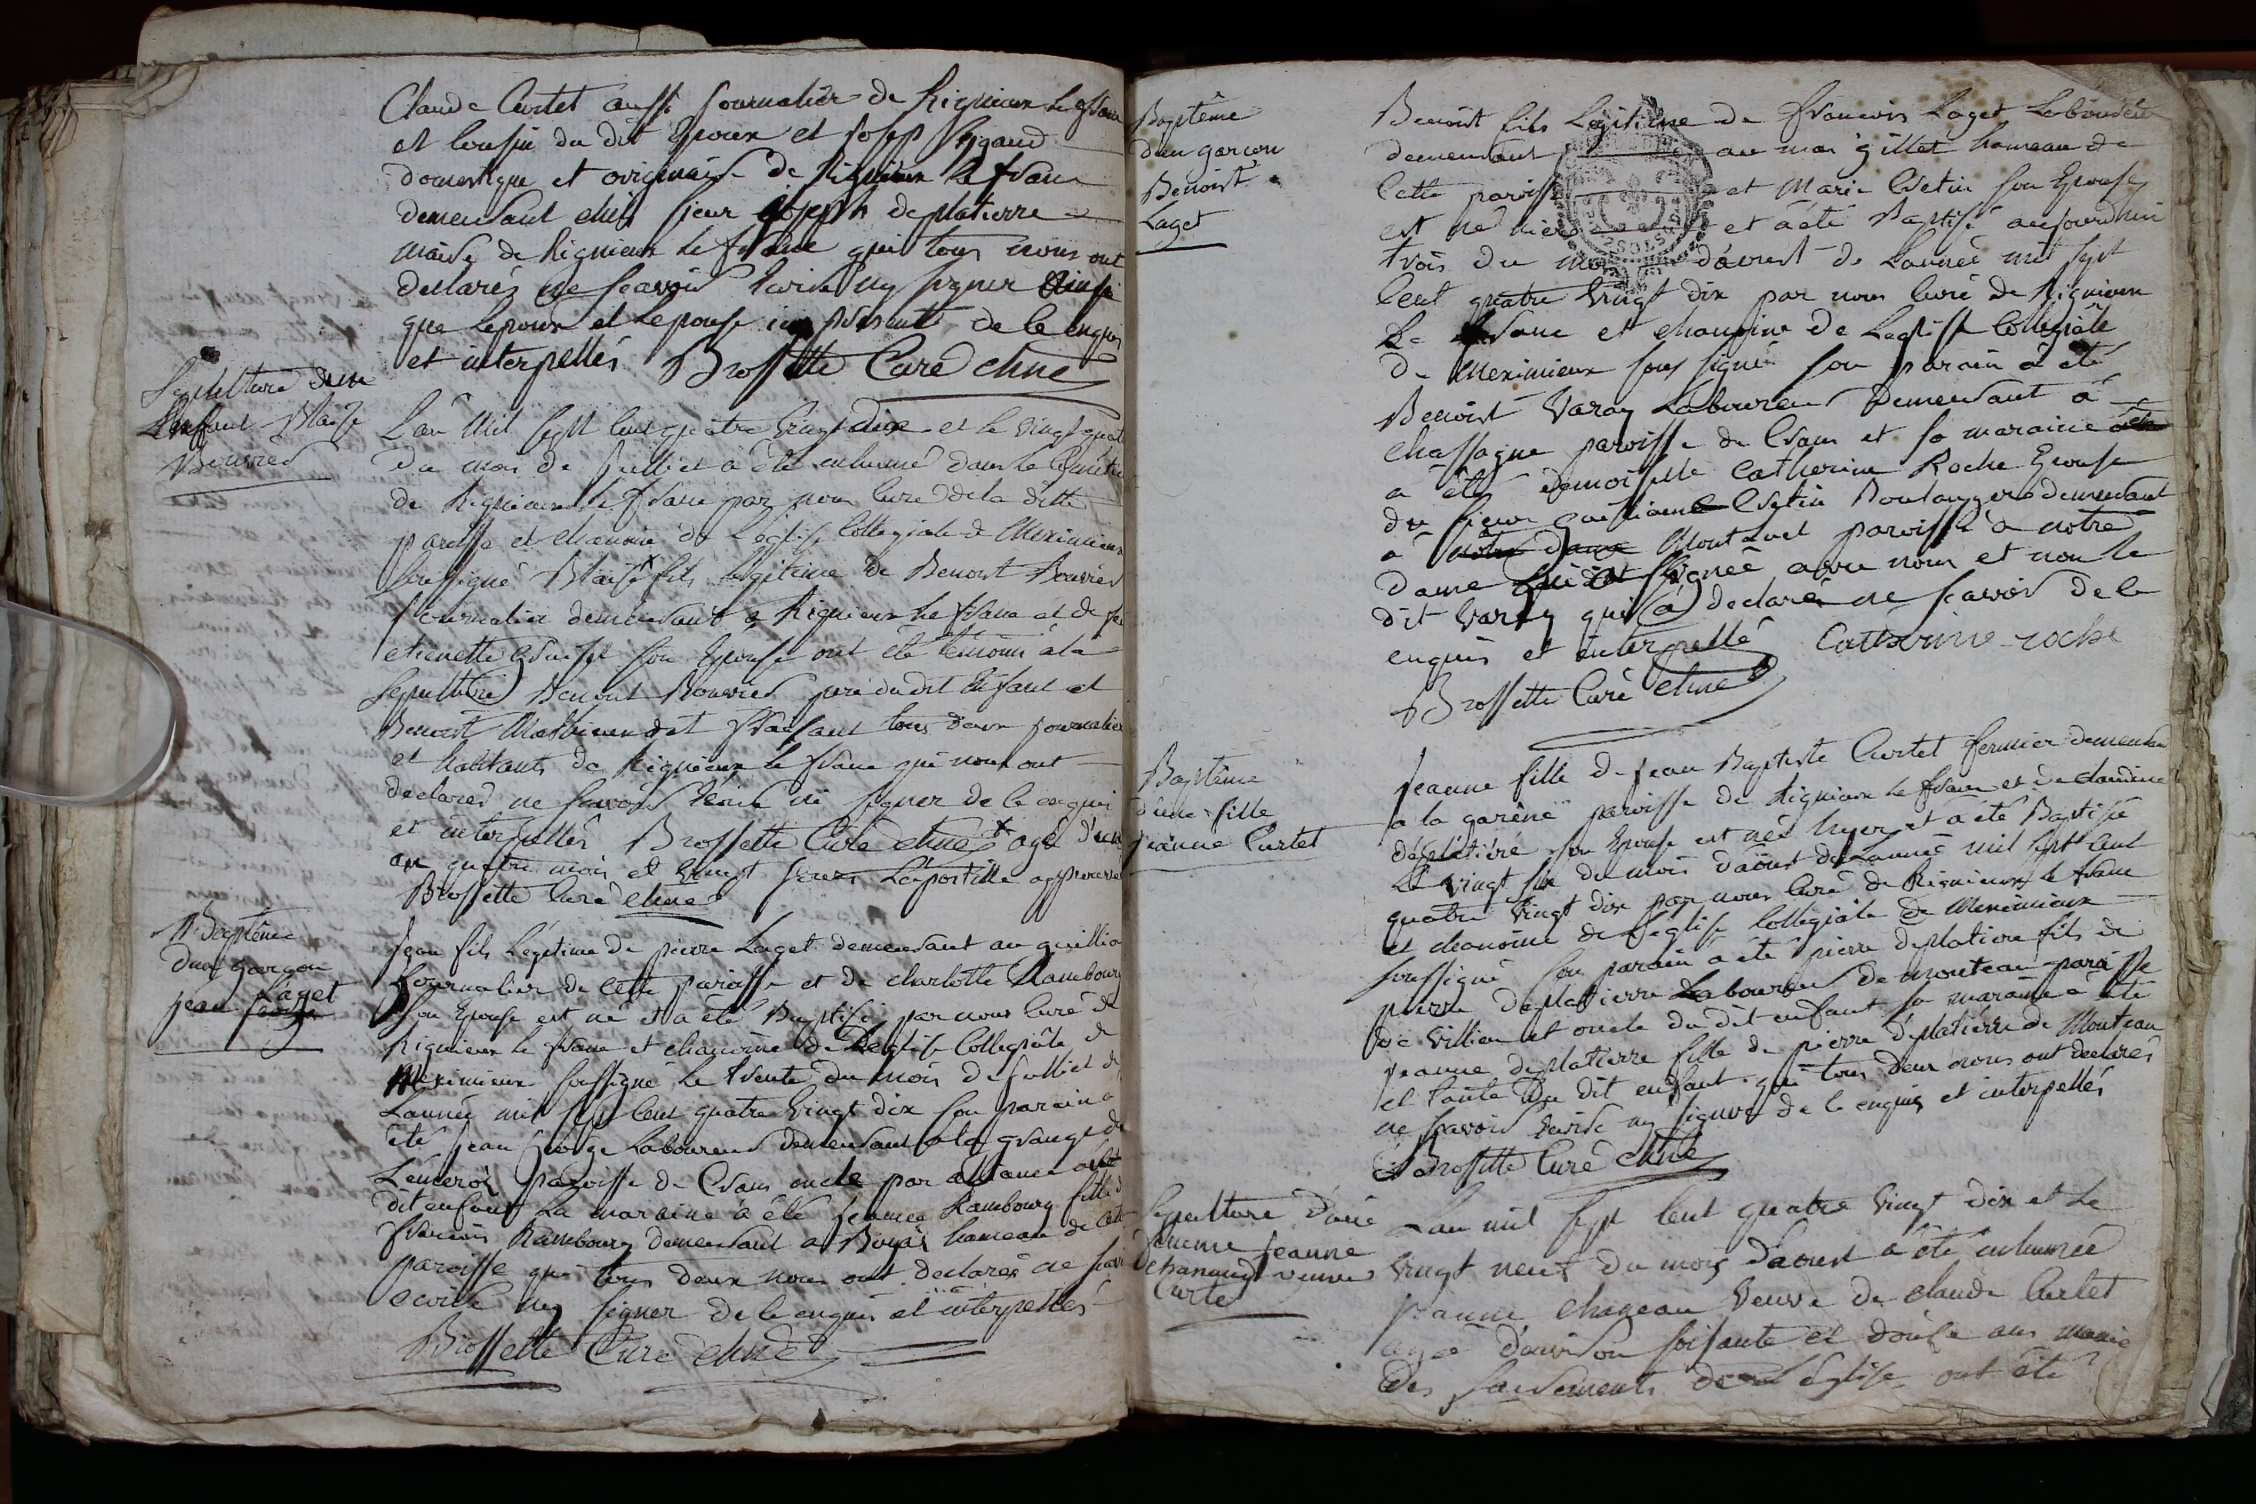 Claude Curtet aussi journalier de Rignieux le franc
et cousin du dit Epoux et Josep Rigaud
domestique et originaire de Rignieux le franc
demeurant chés sieur joseph deplatierre
maire de Rignieux le franc qui tous nous ont
declarés ne scavoir Ecrire ny signer ainsi
que lepoux et Lepouse icy présents de ce enquis
et interpellés Brossette Curé chne
Sepulture d'un
Enfant Blaise
Bouvier
L'an Mil sept cent quatre vingt dix et le vingt quatre
du mois de juillet a été inhumé dans le Cimetiere
de Rignieux le franc par nous Curé de la ditte
paroisse et chanoine de L'église Collegiale de Meximieux
soussigné Blaise x fils legitime de Benoist Bouvier
journalier demeurant à Rignieux le franc et de feu
etiennette son Epouse ont été temoins à la
Sepulture Benoist Bouvier pere du dit Enfant et
Benoist Mathieu dit tous deux journaliers
et habitants de Rignieux le franc qui nous ont
declarés ne scavoir Ecrire ni signer de ce enquis
et interpellés Brossette Curé chne x agé d'un
an quatre mois et vingt jours Lapostille approuvée
Brossette Curé chne
Baptême
d'un garçon
jean Laget
jean fils Légitime de pierre Laget demeurant au guillio
journalier de cette paroisse et de charlotte Rambourg
son Epouse est né et a été Baptisé par nous Curé de
Rignieux le franc et chanoine de L'eglise Collegiale de
Meximieux soussigné le trente du mois de juillet de
L'année mil sept cent quatre vingt dix son parain a
été jean Laboureur demeurant a la grange de
Lémeroi paroisse de Crans oncle par alliance du
dit enfant La maraine a été jeanne Rambourg fille de
francois Rambourg demeurant a hameau de cette
paroisse qui tous deux nous ont declarés ne scavoir
Ecrire ny signer de ce enquis et interpellés
Brossette Curé chne
Baptême
d'un garcon
Benoist
Laget
Benoist fils Légitime de francois Laget Laboureur
demeurant au mas gillet hameau de
Cette paroisse et Marie Cretin son Epouse
est né hier et a été Baptisé aujourdhui
trois du mois d'aoust de L'année mil sept
Cent quatre vingt dix par nous Curé de Rignieux
Le franc et chanoine de Leglise Collegiale
de Meximieux sous signé son parain a été
Benoist Varay Laboureur Demeurant à
Chassagne paroisse de Crans et sa maraine
a été demoiselle Catherine Roche Epouse
du sieur Cretin Boulanger demeurant
à notre dame Montluel paroisse de notre
Dame signée avec nous et non le
dit Varay qui a declaré ne scavoir de ce
enquis et interpellé Catherine roche
Brossette Curé chne
Baptême
d'une fille
jeanne Curtet
jeanne fille de jean Baptiste Curtet fermier demeurant
a la garêne paroisse de Rignieux le franc et de claudine
déplatière son Epouse est née hyer et a été Baptisée
Le vingt six du mois d'aoust de L'année mil sept cent
quatre vingt dix par nous Curé de Rignieux le franc
et chanoine de L'eglise Collégiale de Meximieux
soussigné son parain a été pierre deplatiere fils de
pierre deplatierre Laboureur de monteau paroisse
de Villieu et oncle du dit enfant sa maraine a été
jeanne deplatierre fille de pierre déplatierre de Monteau
et tante du dit enfant qui tous deux nous ont declarés
ne scavoir Ecrire ny signer de ce enquis et interpellés
Brossette Curé chne
Sepulture d'une
femme jeanne
chanaud veuve
Curtet
L'an mil sept cent quatre vingt dix et le
vingt neuf du mois d'aoust a été inhumée
jeanne chaneau veuve de claude Curtet
agée d'environ soisante et douse ans munie
des sacrements de L'Eglise ont été